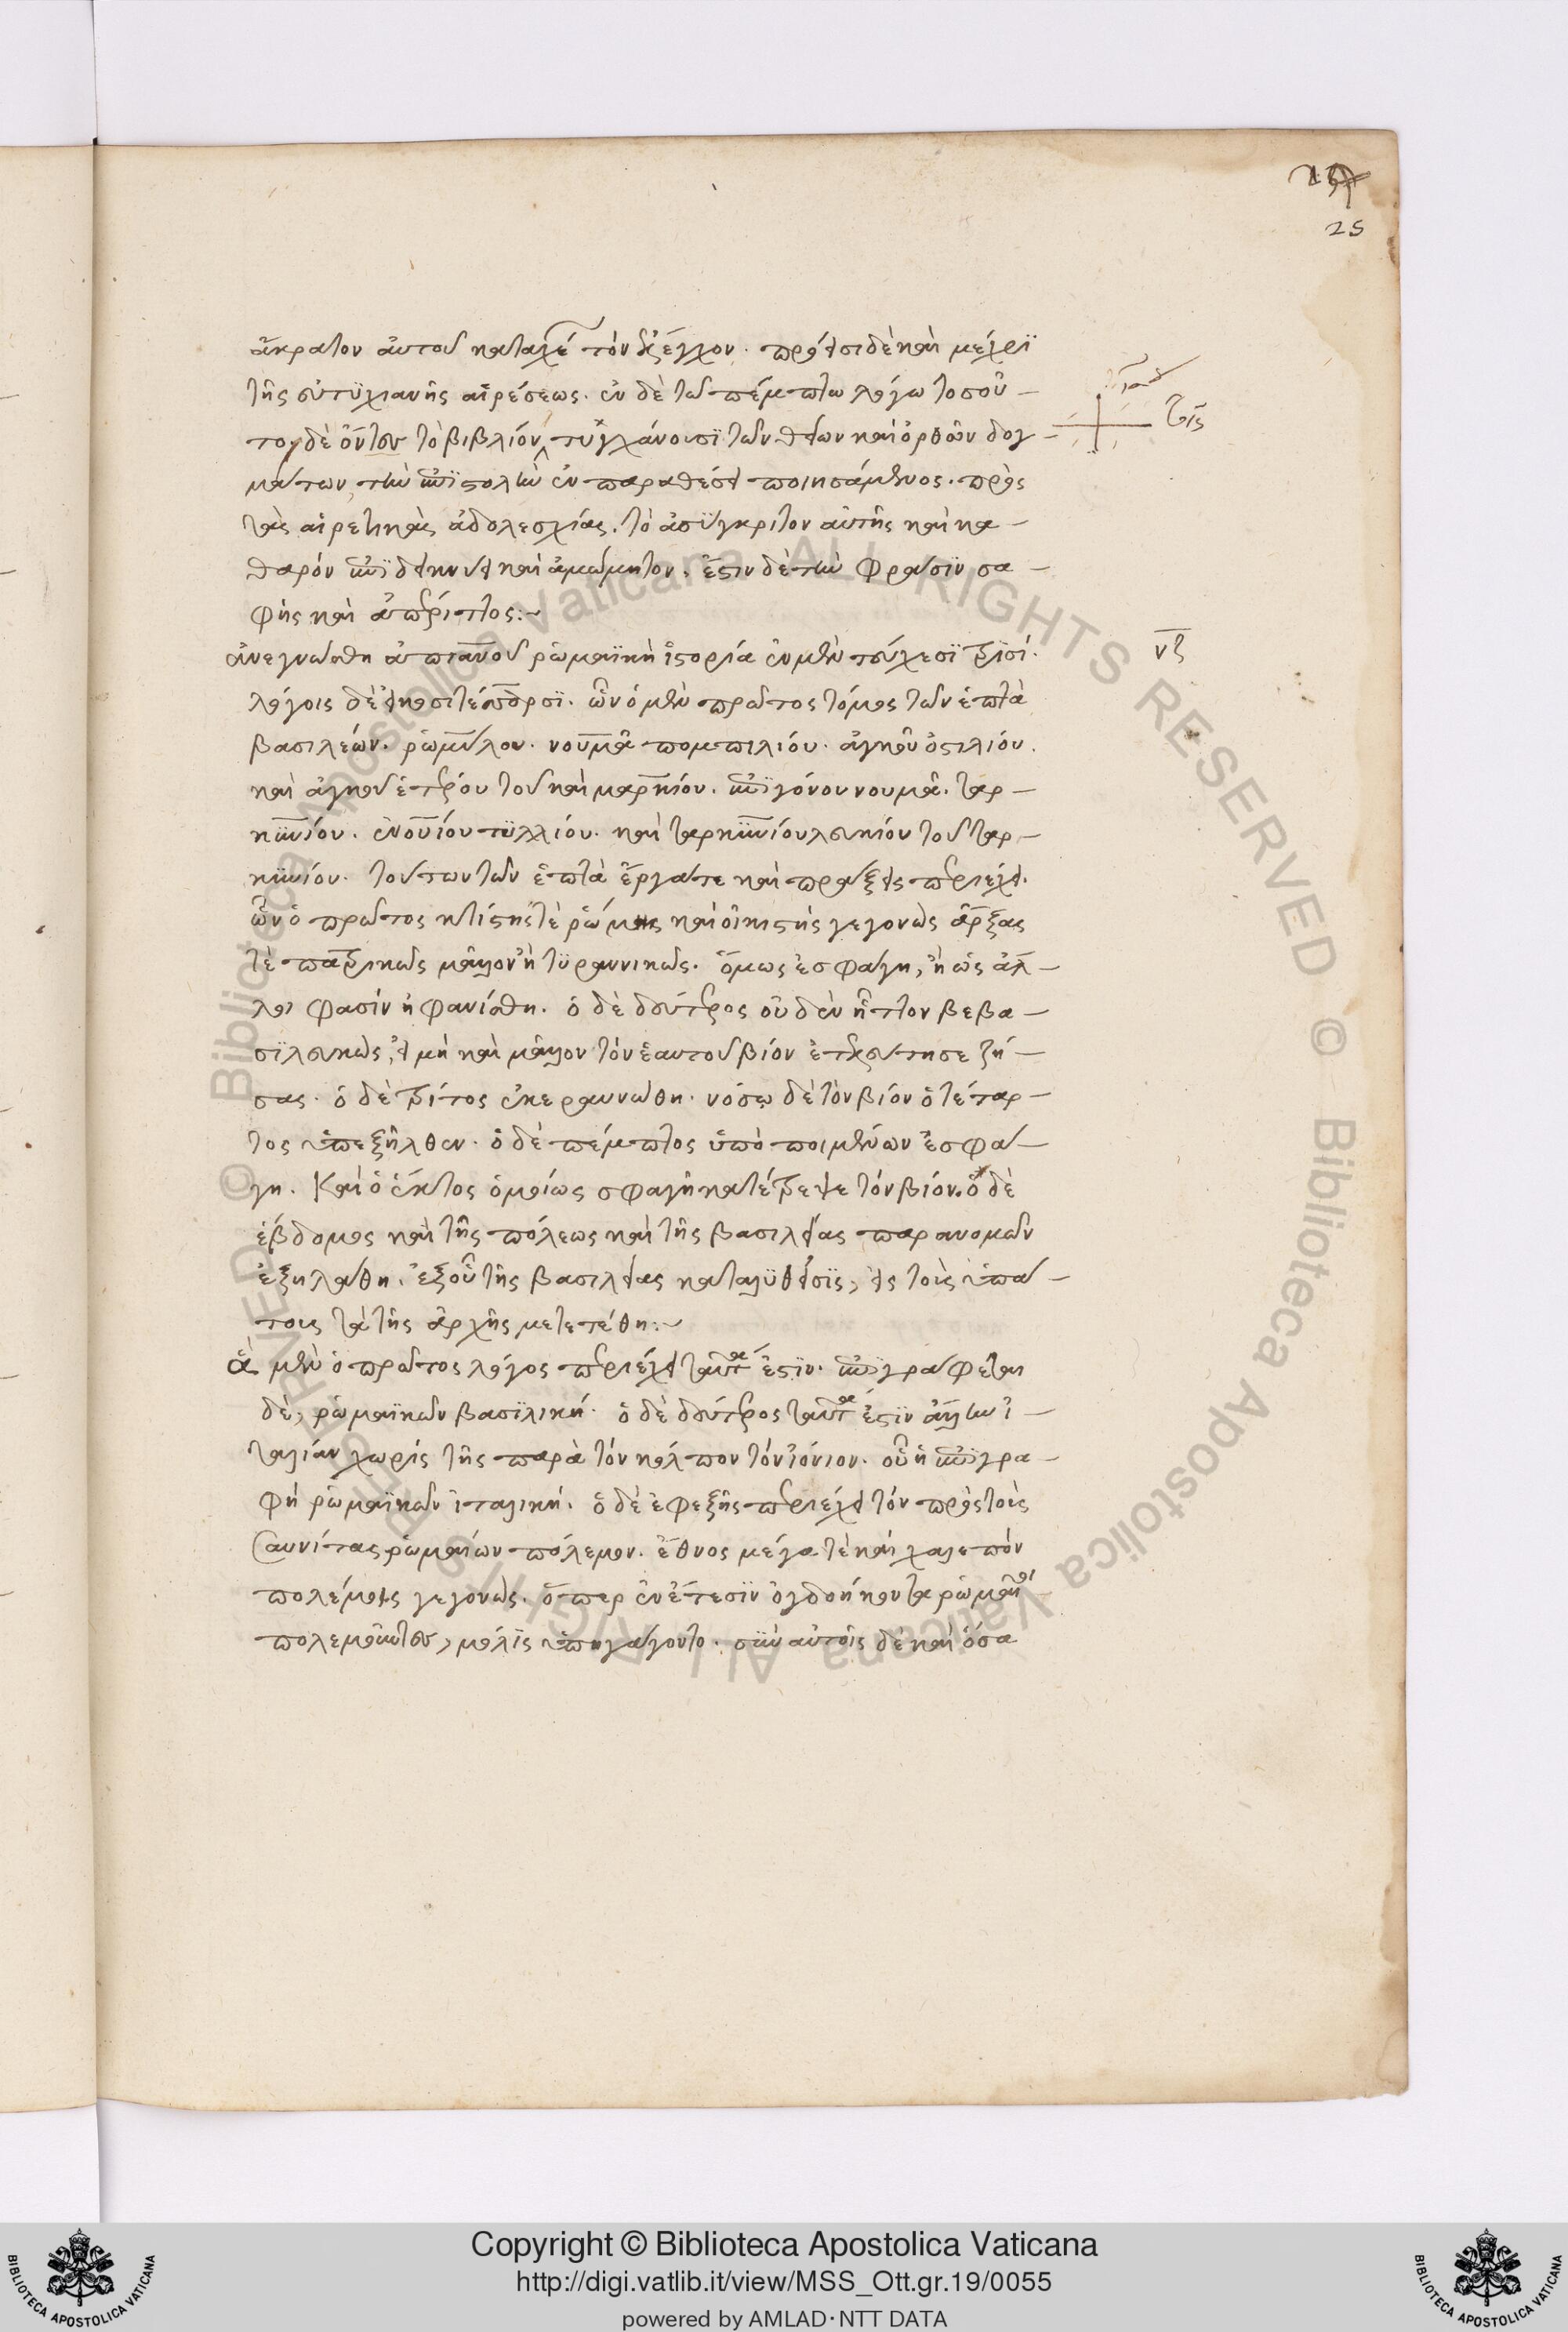 25
ἄκρατον αὐτοῦ καταχέει τὸν ἔλεγχον. πρόεισι δὲ καὶ μέχρι
τῆς εὐτυχιανῆς αἱρέσεως. ἐν δὲ τῶ πέμπτω λόγω τοσοῦ-
του δὲ ὄντος τὸ βιβλίον τυγχάνουσι τῶν θείων καὶ ὀρθῶν δογ-
μάτων τὴν ἐπιστολὴν ἐν παραθέσει ποιησάμενος. πρὸς
τὰς αἱρετικὰς ἀδολεσχίας. τὸ ἀσύγκριτον αὐτῆς καὶ κα-
θαρὸν ἐπιδείκνυσι καὶ ἀμώμητον. ἔστιν δὲ τὴν φράσιν σα-
φὴς καὶ ἀπέριττος:~
ἀνεγνώσθη ἀππιανοῦ ῥωμαϊκὴ ἱστορία ἐν μὲν τεύχεσι τρισί.
λόγοις δὲ εἴκοσι τέτταρσι. ὧν ὁ μὲν πρῶτος τόμος τῶν ἑπτὰ
βασιλέων. ῥωμύλου. νουμᾶ πομπιλίου. ἄγκου ὁστιλίου.
καὶ ἄγκου ἑτέρου τοῦ καὶ μαρκίου. ἐπιγόνου νουμᾶ. ταρ-
κυνίου. σερουίου τυλλίου. καὶ ταρκυνίου λευκίου τοῦ ταρ-
κυνίου. τούτων τῶν ἑπτὰ ἔργα τε καὶ πράξεις περιέχει.
ὧν ὁ πρῶτος κτίστης τὲ ῥώμης καὶ οἰκιστὴς γεγονὼς ἄρξας
τὲ πατρικῶς μᾶλλον ἢ τυραννικῶς. ὅμως ἐσφάγη, ἢ ὡς ἄλ-
λοι φασὶν ἠφανίσθη. ὁ δὲ δεύτερος οὐδὲν ἧττον βεβα-
σιλευκώς, εἰ μὴ καὶ μᾶλλον τὸν ἑαυτοῦ βίον ἐτελεύτησε ζή-
σας. ὁ δὲ τρίτος ἐκεραυνώθη. νόσῳ δὲ τὸν βίον ὁ τέταρ-
τος ὑπεξῆλθεν. ὁ δὲ πέμπτος ὑπὸ ποιμένων ἐσφά-
γη. Καὶ ὁ ἕκτος ὁμοίως σφαγῆ κατέτρεψε τὸν βίον. ὁ δὲ
ἕβδομος καὶ τῆς πόλεως καὶ τῆς βασιλείας παρανομῶν
ἐξηλάθη. ἐξ οὗ τῆς βασιλείας καταλυθείσης, εἰς τοὺς ὑπά-
τους τὰ τῆς ἀρχῆς μετετέθη:~
ἃ μὲν ὁ πρῶτος λόγος περιέχει ταῦτά ἐστιν. ἐπιγράφεται
δὲ, ῥωμαϊκῶν βασιλική. ὁ δὲ δεύτερος ταῦτά ἐστιν ἄλλην ἰ-
ταλίαν χωρὶς τῆς παρὰ τὸν κόλπον τὸν ἰόνιον. οὗ ἡ ἐπιγρα-
φὴ ῥωμαϊκῶν ἰταλική. ὁ δὲ ἐφεξῆς περιέχει τὸν πρὸς τοὺς
Σαυνίτας ῥωμαίων πόλεμον. ἔθνος μέγα τὲ καὶ χαλεπὸν
πολέμοις γεγονώς. ὅπερ ἐν ἔτεσιν ὀγδοήκοντα ῥωμαῖοι
πολεμοῦντες, μόλις ὑπηγάγοντο. σὺν αὐτοῖς δὲ καὶ ὅσα
νζ
© Biblioteca Apostolica Vaticana ALL RIGHTS RESERVED © Biblioteca Apostolica Vaticana ALL RIGHTS RESERVED
Copyright © Biblioteca Apostolica Vaticana
http://digi.vatlib.it/view/MSS_Ott.gr.19/0055
powered by AMLAD·NTT DATA
BIBLIOTECA APOSTOLICA VATICANA
BIBLIOTECA APOSTOLICA VATICANA